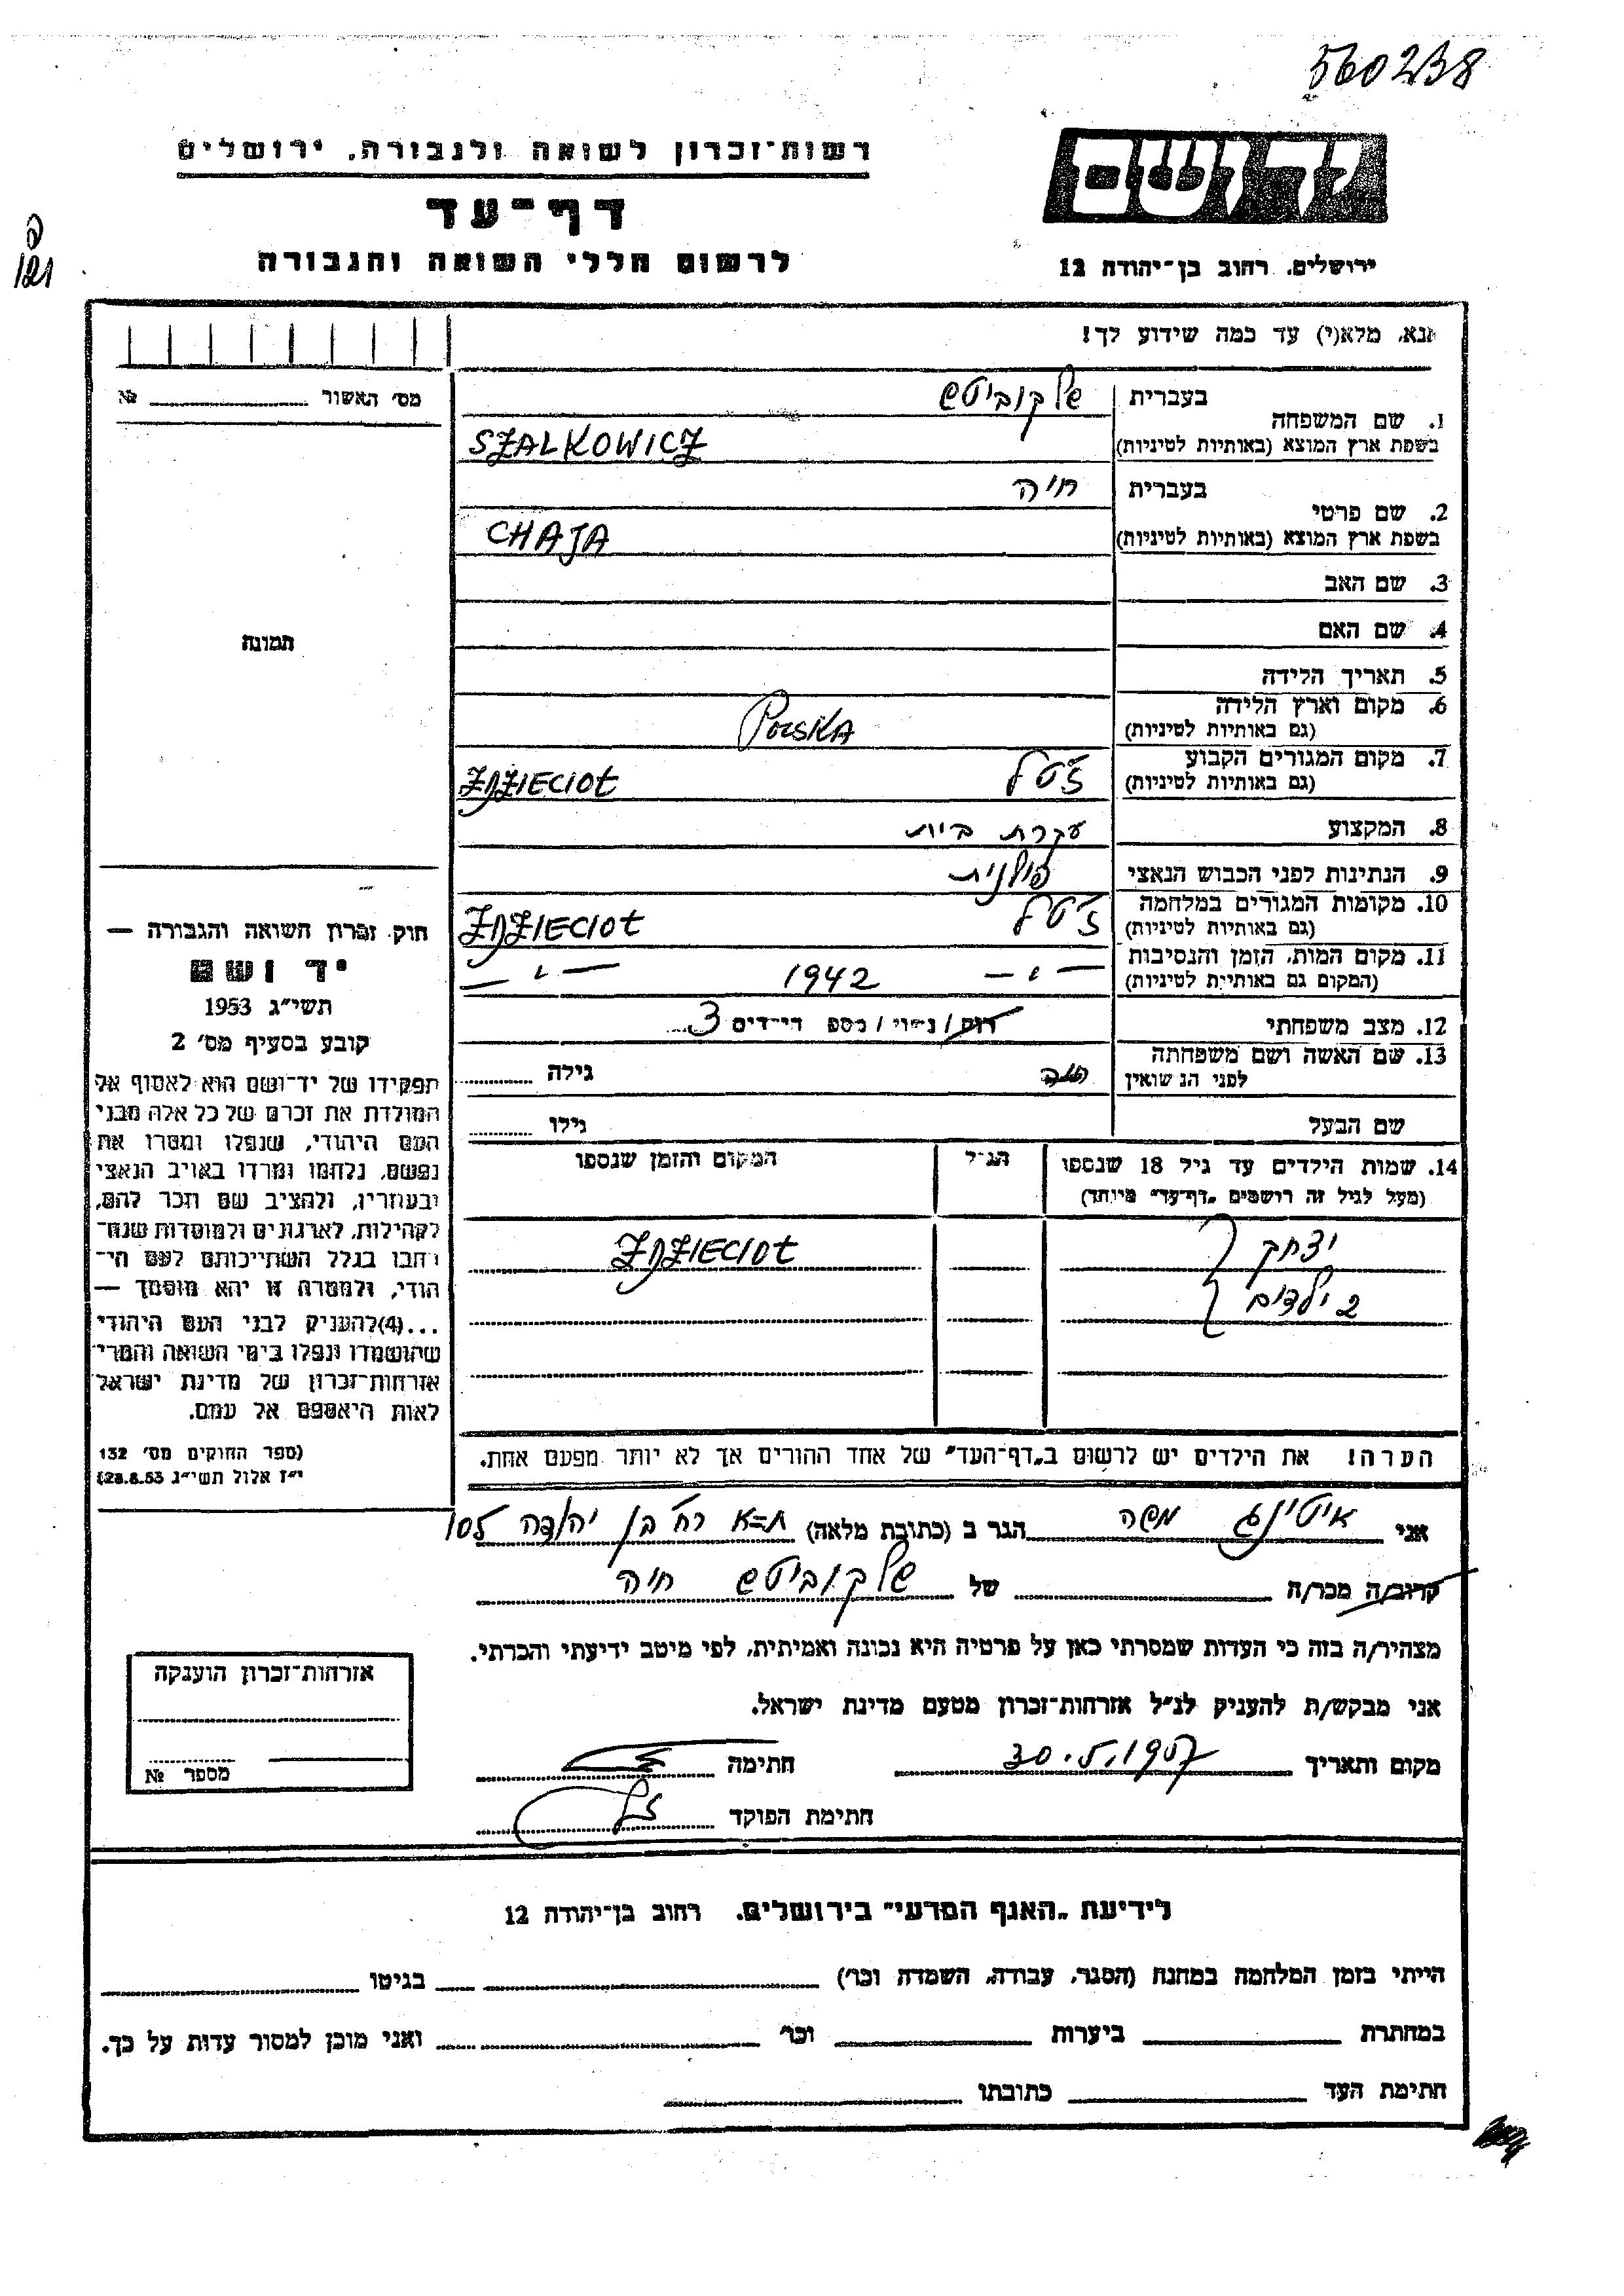 560238
רשות־זכרון לשואה ולגבורה, ירושלים
יד ושם
דף־עד
לרשום חללי השואה והגבורה
ירושלים, רחוב בן־יהודה 12
121
אנא, מלא(י) עד כמה שידוע לך!
מס׳ האשור № 
1. שם המשפחה
בעברית שלקוביטש
בשפת ארץ המוצא (באותיות לטיניות) SZALKOWICZ
2. שם פרטי
בעברית חיה
בשפת ארץ המוצא (באותיות לטיניות) CHAJA
3. שם האב
4. שם האם
תמונה
5. תאריך הלידה
6. מקום וארץ הלידה
(גם באותיות לטיניות) POLSKA
7. מקום המגורים הקבוע
(גם באותיות לטיניות) ז׳טל ZDZIECIOŁ
8. המקצוע עקרת בית
9. הנתינות לפני הכבוש הנאצי פולנית
10. מקומות המגורים במלחמה
(גם באותיות לטיניות) ז׳טל ZDZIECIOŁ
11. מקום המות, הזמן והנסיבות
(המקום גם באותיות לטיניות) —״— 1942 —״—
12. מצב משפחתי רווק/נשוי/מספר הילדים 3
13. שם האשה ושם משפחתה
לפני הנשואין גילה
שם הבעל גילו
14. שמות הילדים עד גיל 18 שנספו הגיל המקום והזמן שנספו
(מעל לגיל זה רושמים „דף־עד״ מיוחד)
יצחק ZDZIECIOŁ
2 ילדים
הערה! את הילדים יש לרשום ב„דף־העד״ של אחד ההורים אך לא יותר מפעם אחת.
חוק זכרון השואה והגבורה —
יד ושם
תשי״ג 1953
קובע בסעיף מס׳ 2
תפקידו של יד־ושם הוא לאסוף אל
המולדת את זכרם של כל אלה מבני
העם היהודי, שנפלו ומסרו את
נפשם, נלחמו ומרדו באויב הנאצי
ובעוזריו, ולהציב שם וזכר להם,
לקהילות, לארגונים ולמוסדות שנח־
רבו בגלל השתייכותם לעם הי־
הודי, ולמטרה זו יהא מוסמך —
...(4)להעניק לבני העם היהודי
שהושמדו ונפלו בימי השואה והמרי־
אזרחות־זכרון של מדינת ישראל
לאות היאספם אל עמם.
(ספר החוקים מס׳ 132
י״ז אלול תשי״ג 28.8.53)
אני איטינג משה הגר ב (כתובת מלאה) ת״א רח׳ בן יהודה 105
קרוב/ה מכר/ה של שלקוביטש חיה
מצהיר/ה בזה כי העדות שמסרתי כאן על פרטיה היא נכונה ואמיתית, לפי מיטב ידיעתי והכרתי.
אני מבקש/ת להעניק לנ״ל אזרחות־זכרון מטעם מדינת ישראל.
מקום ותאריך 30.5.1957 חתימה
חתימת הפוקד
אזרחות־זכרון הוענקה
מספר №
לידיעת „האגף המדעי״ בירושלים, רחוב בן־יהודה 12
הייתי בזמן המלחמה במחנה (הסגר, עבודה, השמדה וכו׳) בגיטו
במחתרת ביערות וכו׳ ואני מוכן למסור עדות על כך.
חתימת העד כתובתו